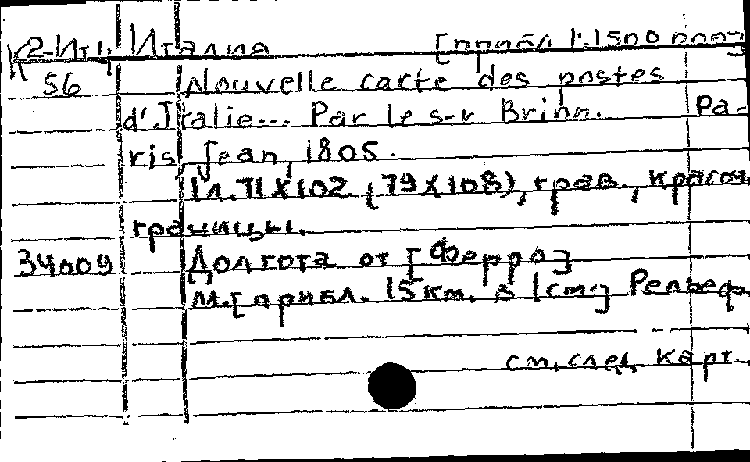 К2-Ит Италия [прибл 1:1500 000]
56 Nouvelle carte des postes
d'Italie... Par le s-r Brion. Pa-
ris, Jean, 1805.
1л. 71x102 (79x108), грав., красоч.
границы.
34009 Долгота от [Ферро]
М. [прибл. 15км. в 1см.] Рельеф
см. след. карт.